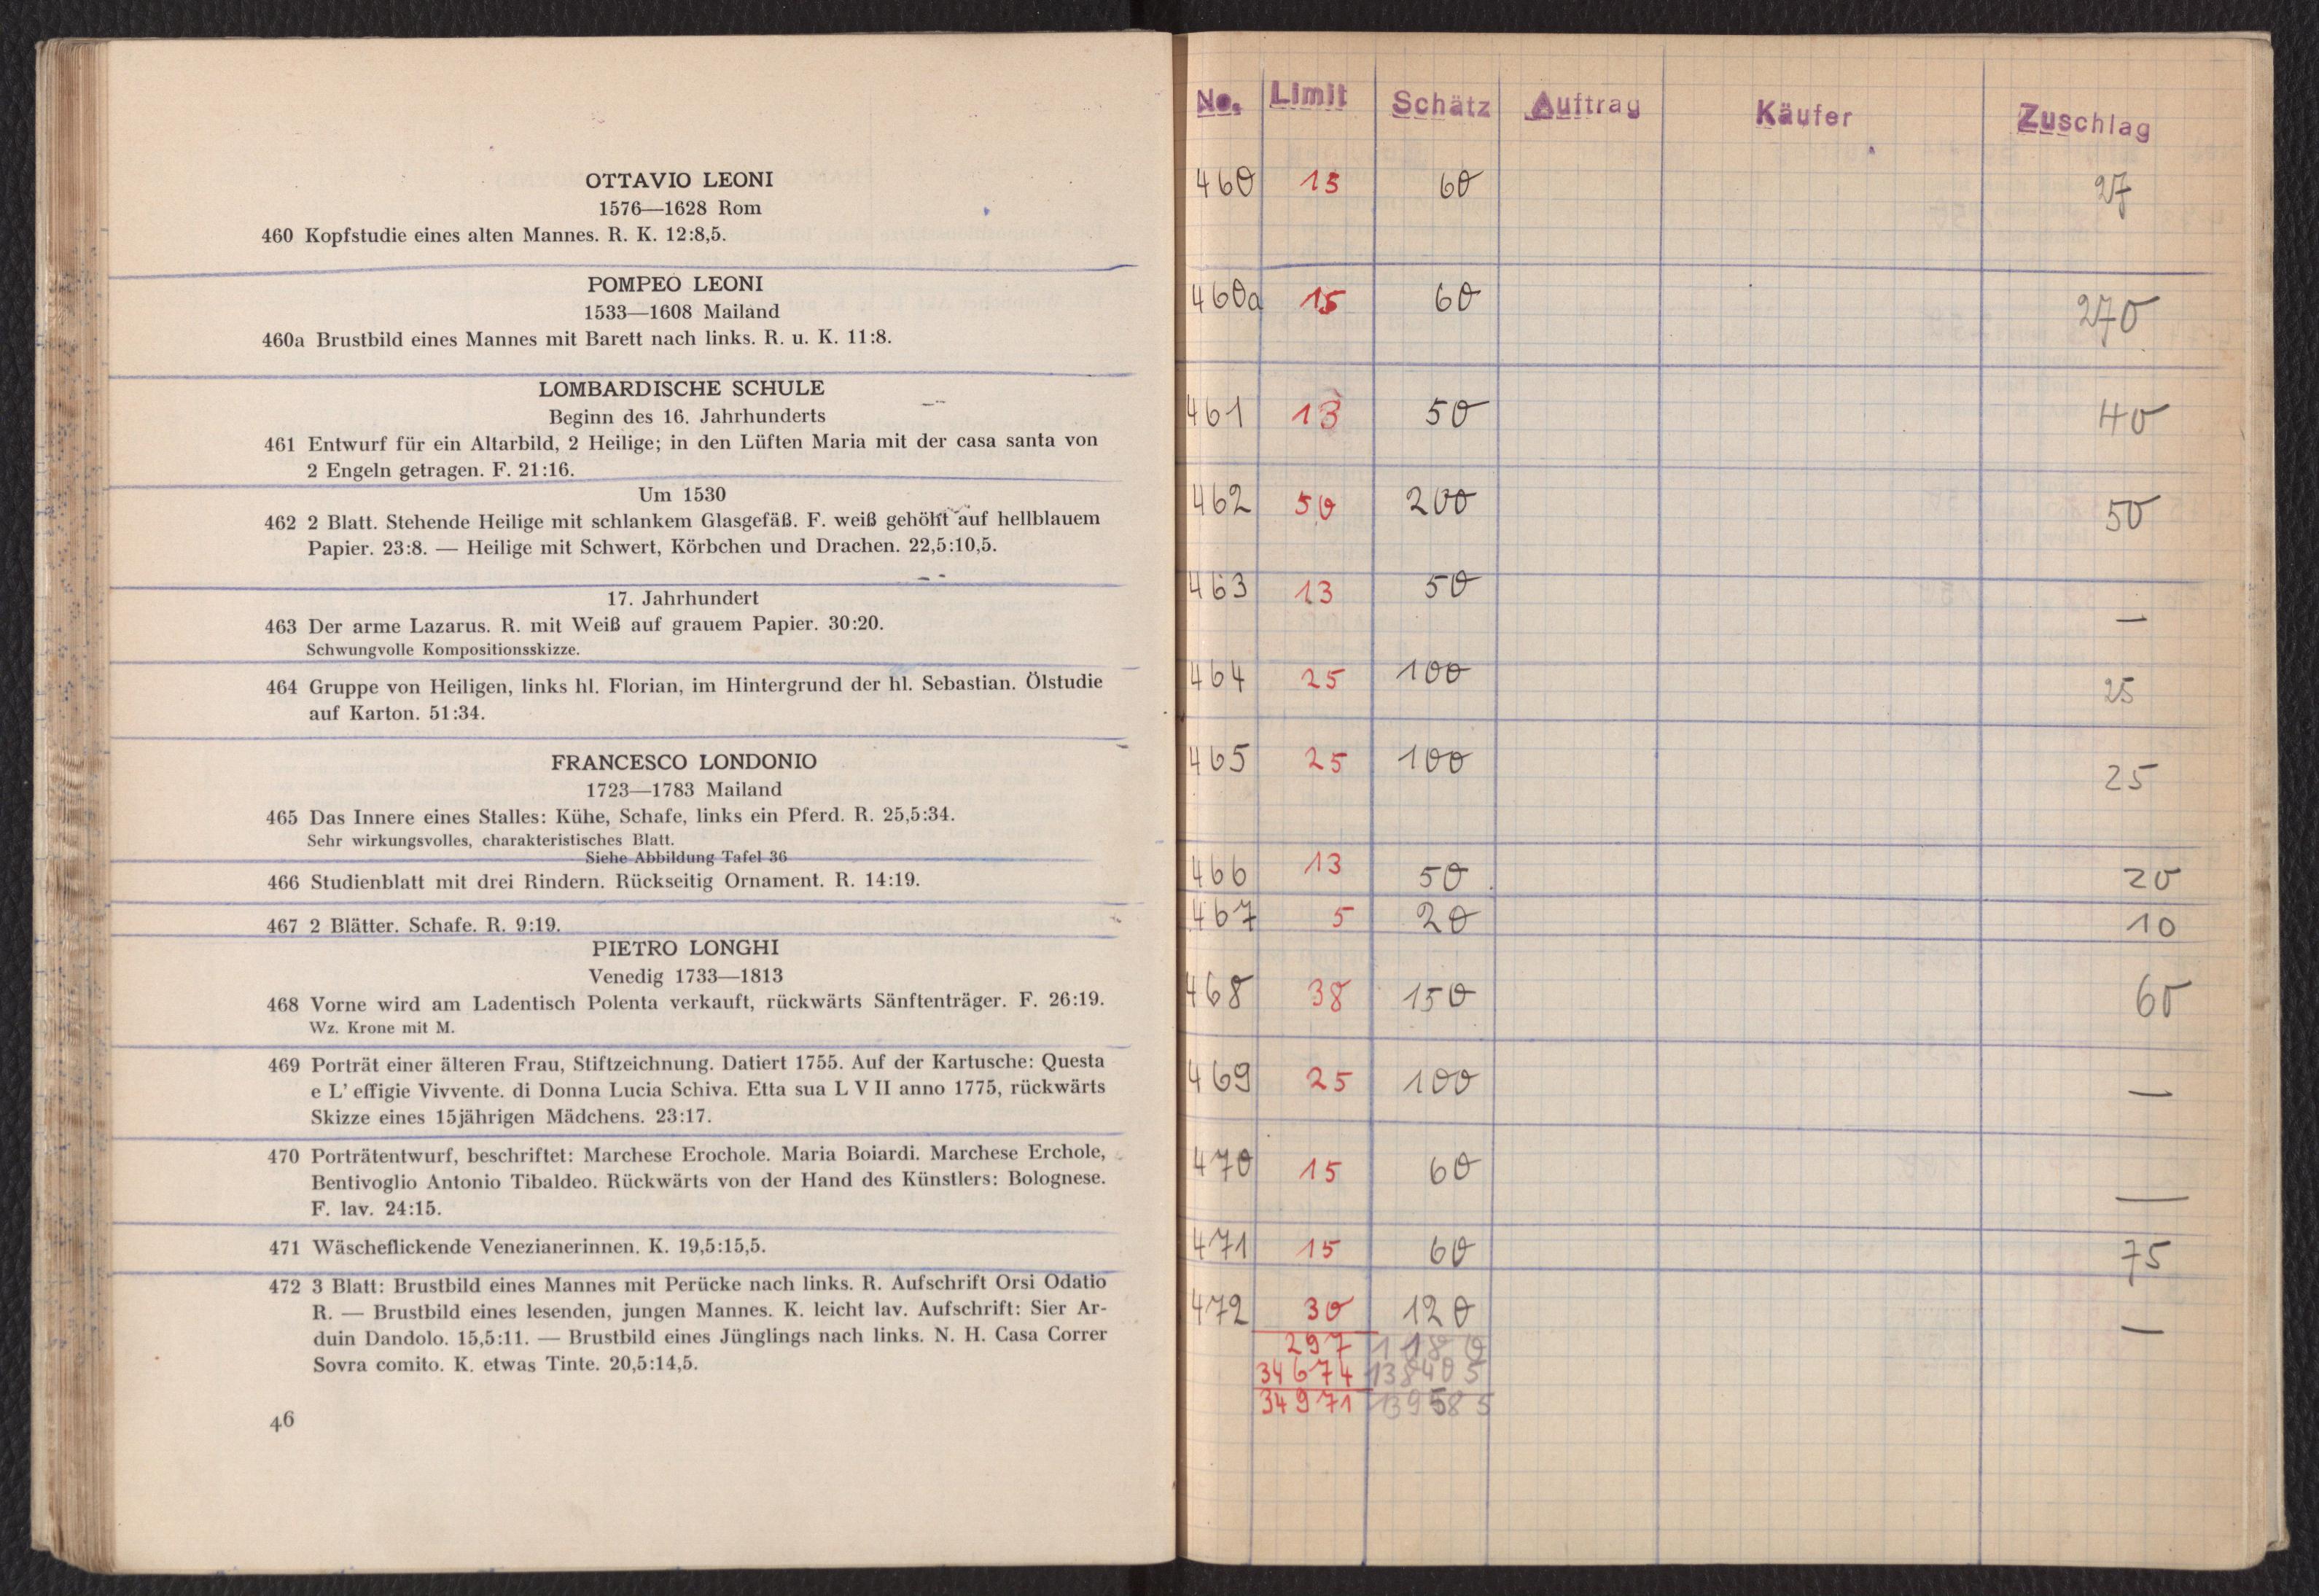 OTTAVIO LEONI
1576—1628 Rom
460 Kopfstudie eines alten Mannes. R. K. 12:8,5.
POMPEO LEONI
1533—1608 Mailand
460a Brustbild eines Mannes mit Barett nach links. R. u. K. 11:8.
LOMBARDISCHE SCHULE
Beginn des 16. Jahrhunderts
461 Entwurf für ein Altarbild, 2 Heilige; in den Lüften Maria mit der casa santa von
2 Engeln getragen. F. 21:16.
Um 1530
462 2 Blatt. Stehende Heilige mit schlankem Glasgefäß. F. weiß gehöht auf hellblauem
Papier. 23:8. — Heilige mit Schwert, Körbchen und Drachen. 22,5:10,5.
17. Jahrhundert
463 Der arme Lazarus. R. mit Weiß auf grauem Papier. 30:20.
Schwungvolle Kompositionsskizze.
464 Gruppe von Heiligen, links hl. Florian, im Hintergrund der hl. Sebastian. Ölstudie
auf Karton. 51:34.
FRANCESCO LONDONIO
1723—1783 Mailand
465 Das Innere eines Stalles: Kühe, Schafe, links ein Pferd. R. 25,5:34.
Sehr wirkungsvolles, charakteristisches Blatt.
Siehe Abbildung Tafel 36
466 Studienblatt mit drei Rindern. Rückseitig Ornament. R. 14:19.
467 2 Blätter. Schafe. R. 9:19.
PIETRO LONGHI
Venedig 1733—1813
468 Vorne wird am Ladentisch Polenta verkauft, rückwärts Sänftenträger. F. 26:19.
Wz. Krone mit M.
469 Porträt einer älteren Frau, Stiftzeichnung. Datiert 1755. Auf der Kartusche: Questa
e L' effigie Vivvente. di Donna Lucia Schiva. Etta sua L V II anno 1775, rückwärts
Skizze eines 15jährigen Mädchens. 23:17.
470 Porträtentwurf, beschriftet: Marchese Erochole. Maria Boiardi. Marchese Erchole,
Bentivoglio Antonio Tibaldeo. Rückwärts von der Hand des Künstlers: Bolognese.
F. lav. 24:15.
471 Wäscheflickende Venezianerinnen. K. 19,5:15,5.
472 3 Blatt: Brustbild eines Mannes mit Perücke nach links. R. Aufschrift Orsi Odatio
R. — Brustbild eines lesenden, jungen Mannes. K. leicht lav. Aufschrift: Sier Ar-
duin Dandolo. 15,5:11. — Brustbild eines Jünglings nach links. N. H. Casa Correr
Sovra comito. K. etwas Tinte. 20,5:14,5.
46
No. Limit Schätz Auftrag Käufer Zuschlag
460 15 60 27
460a 15 60 270
461 13 50 40
462 50 200 50
463 13 50 —
464 25 100 25
465 25 100 25
466 13 50 20
467 5 20 10
468 38 150 60
469 25 100 —
470 15 60 —
471 15 60 75
472 30 120 —
297 1180
34674 138405
34971 139585